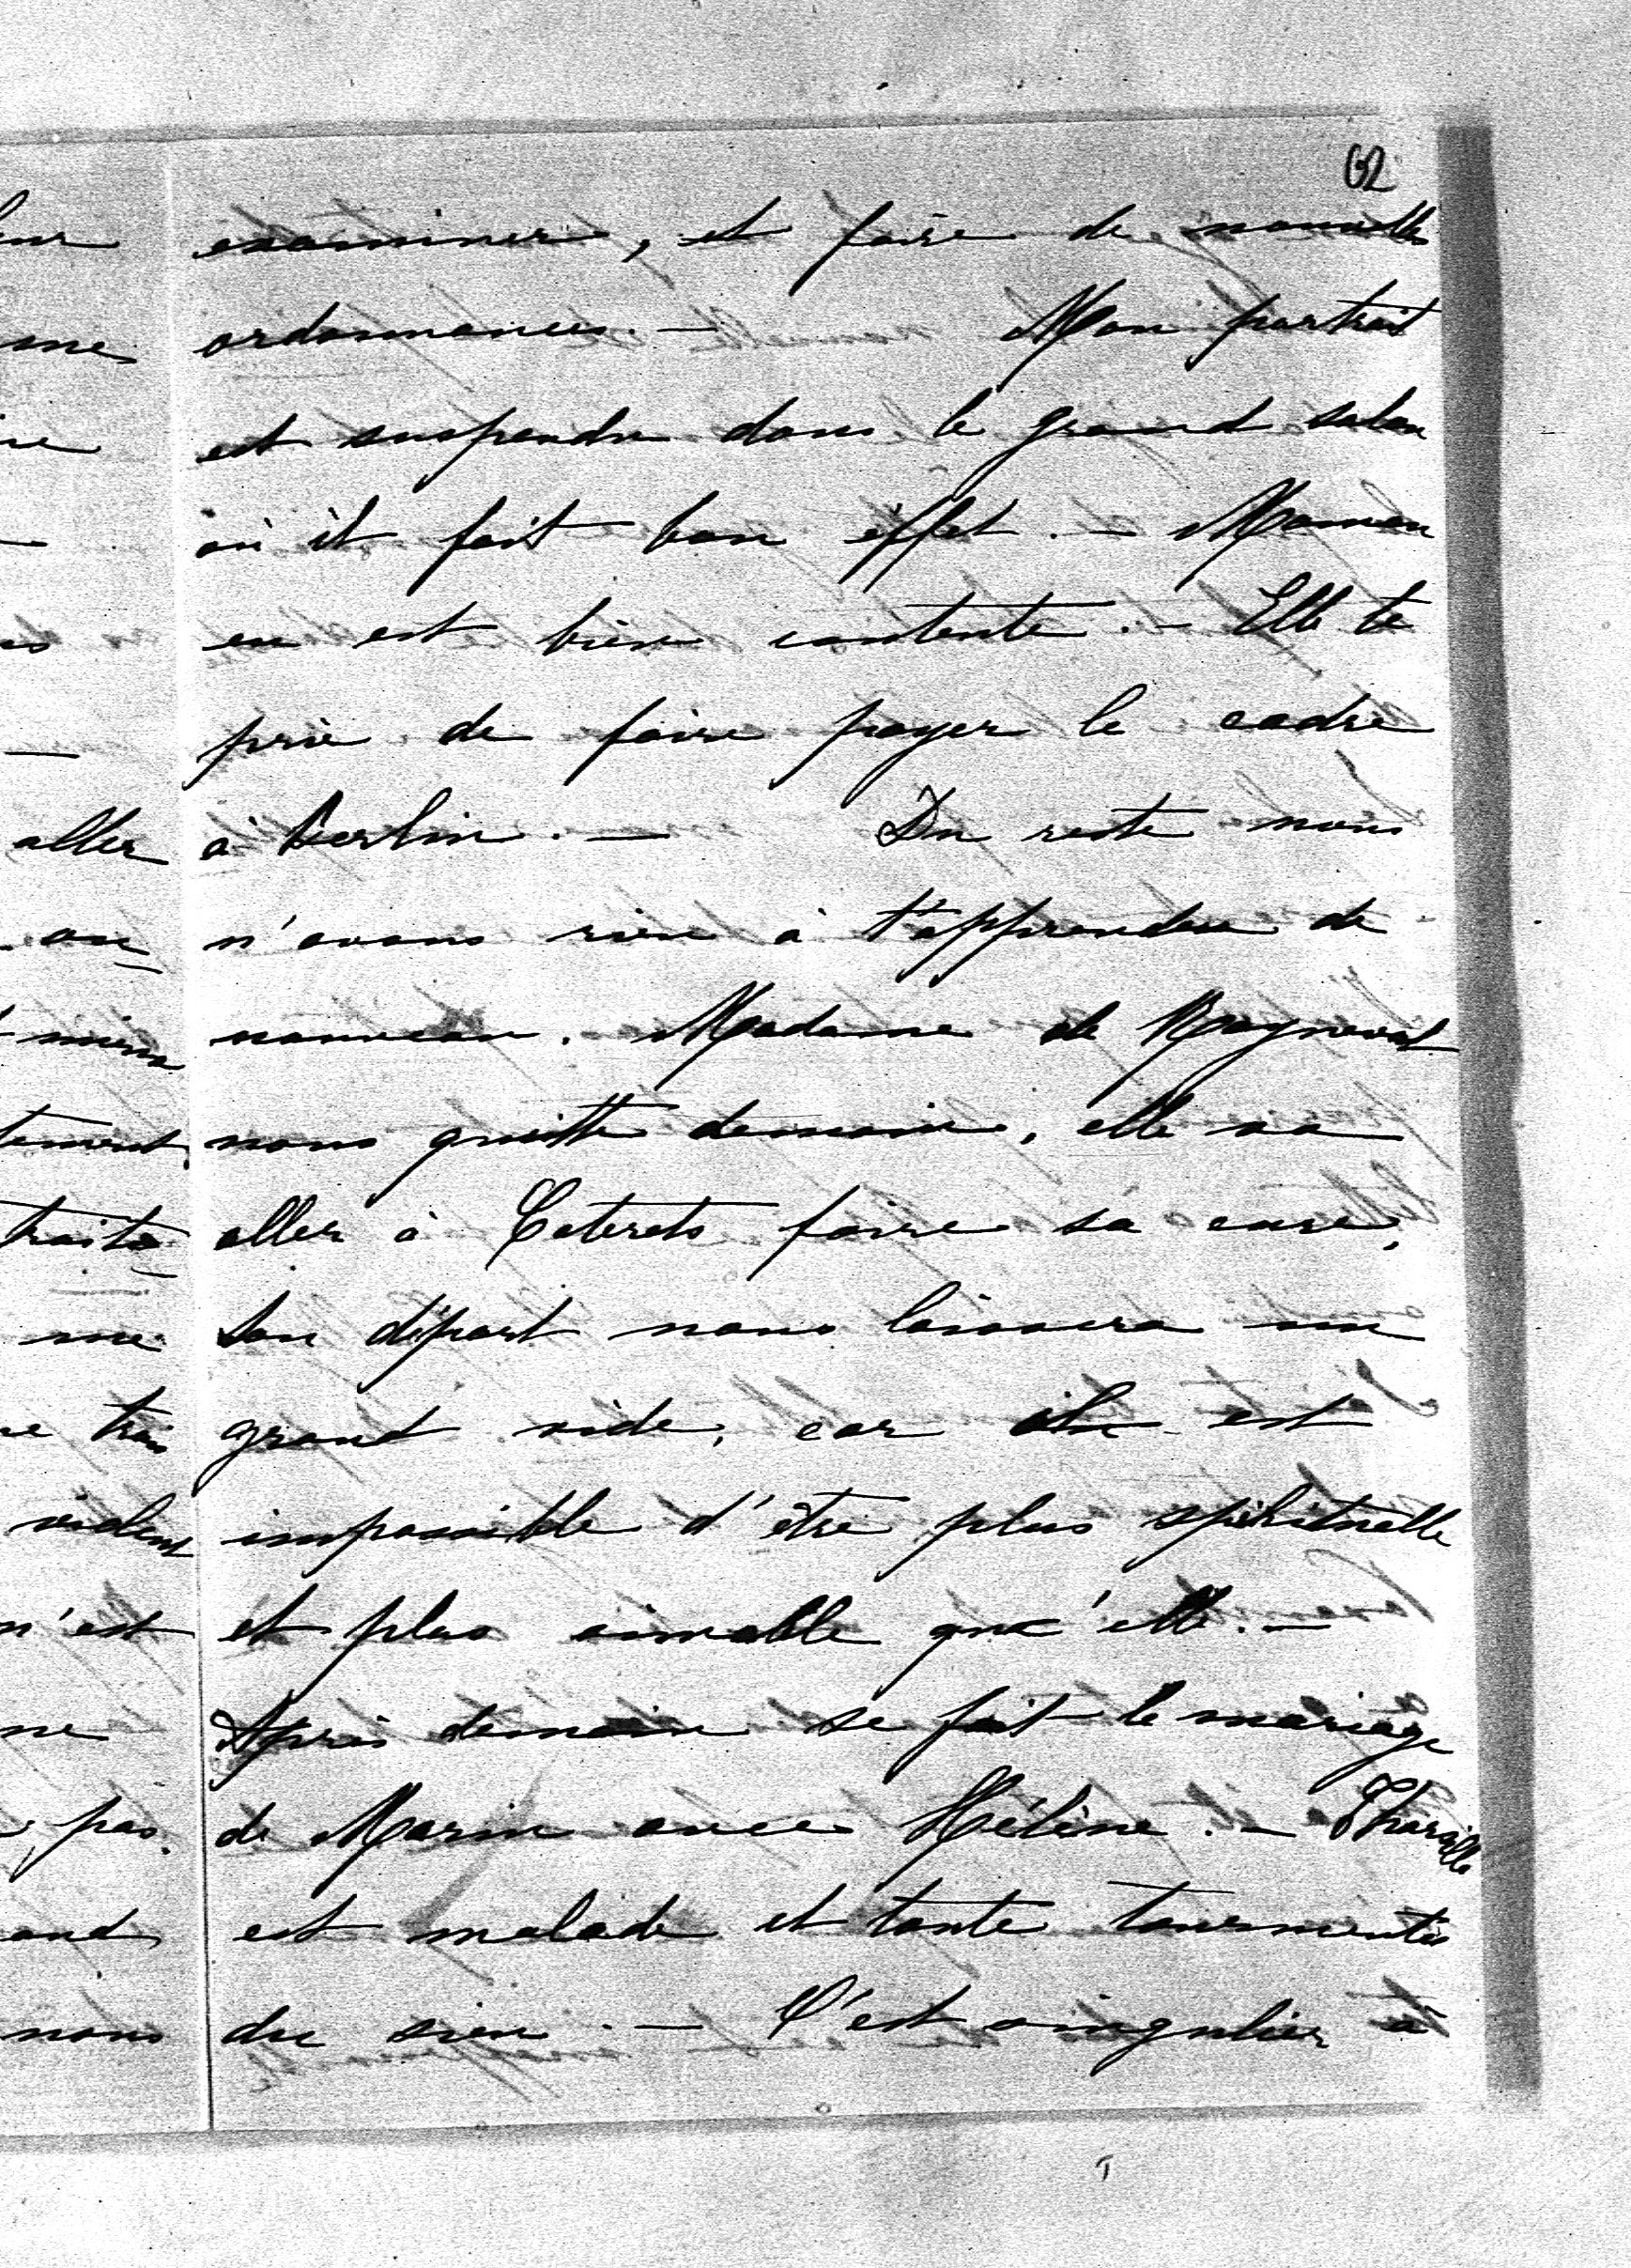 62
examiner, et faire de nouvelles
ordonnances. — Mon portrait
est suspendu dans le grand salon
où il fait bon effet. — Maman
en est bien contente. — Elle te
prie de faire payer le cadre
à Berlin. — Du reste nous
n'avons rien à t'apprendre de
nouveau. Madame de
nous quitte demain, elle va
aller à faire sa cure,
son départ nous laissera un
grand vide, car il est
impossible d'être plus spirituelle
et plus aimable qu'elle. —
Après demain se fait le mariage
de Marin avec Hélène. —
est malade et tante tourmentée
du sien. — C'est singulier à
aller
n'est
pas
nous